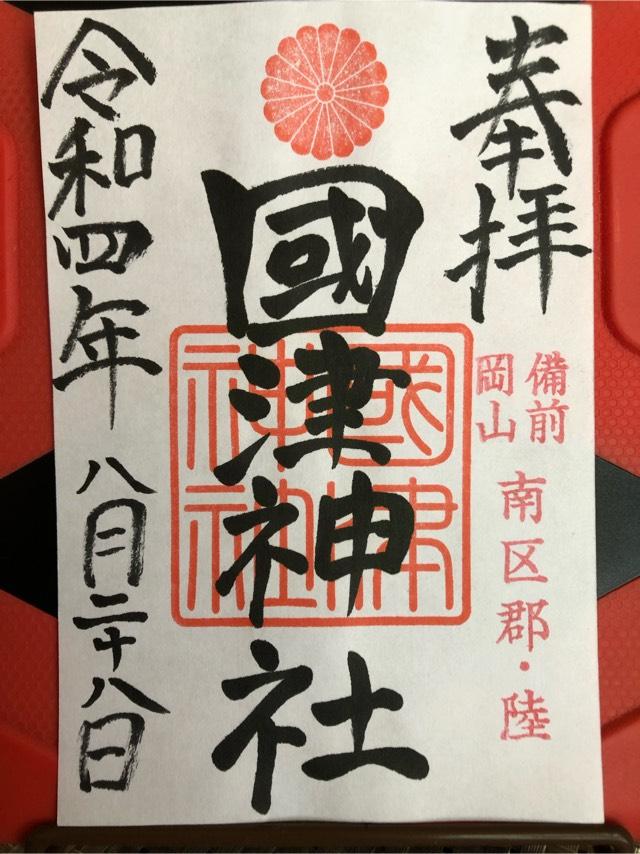 奉拝
備前
岡山
南区郡・陸
國津神社
國津
神社
令和四年八月二十八日